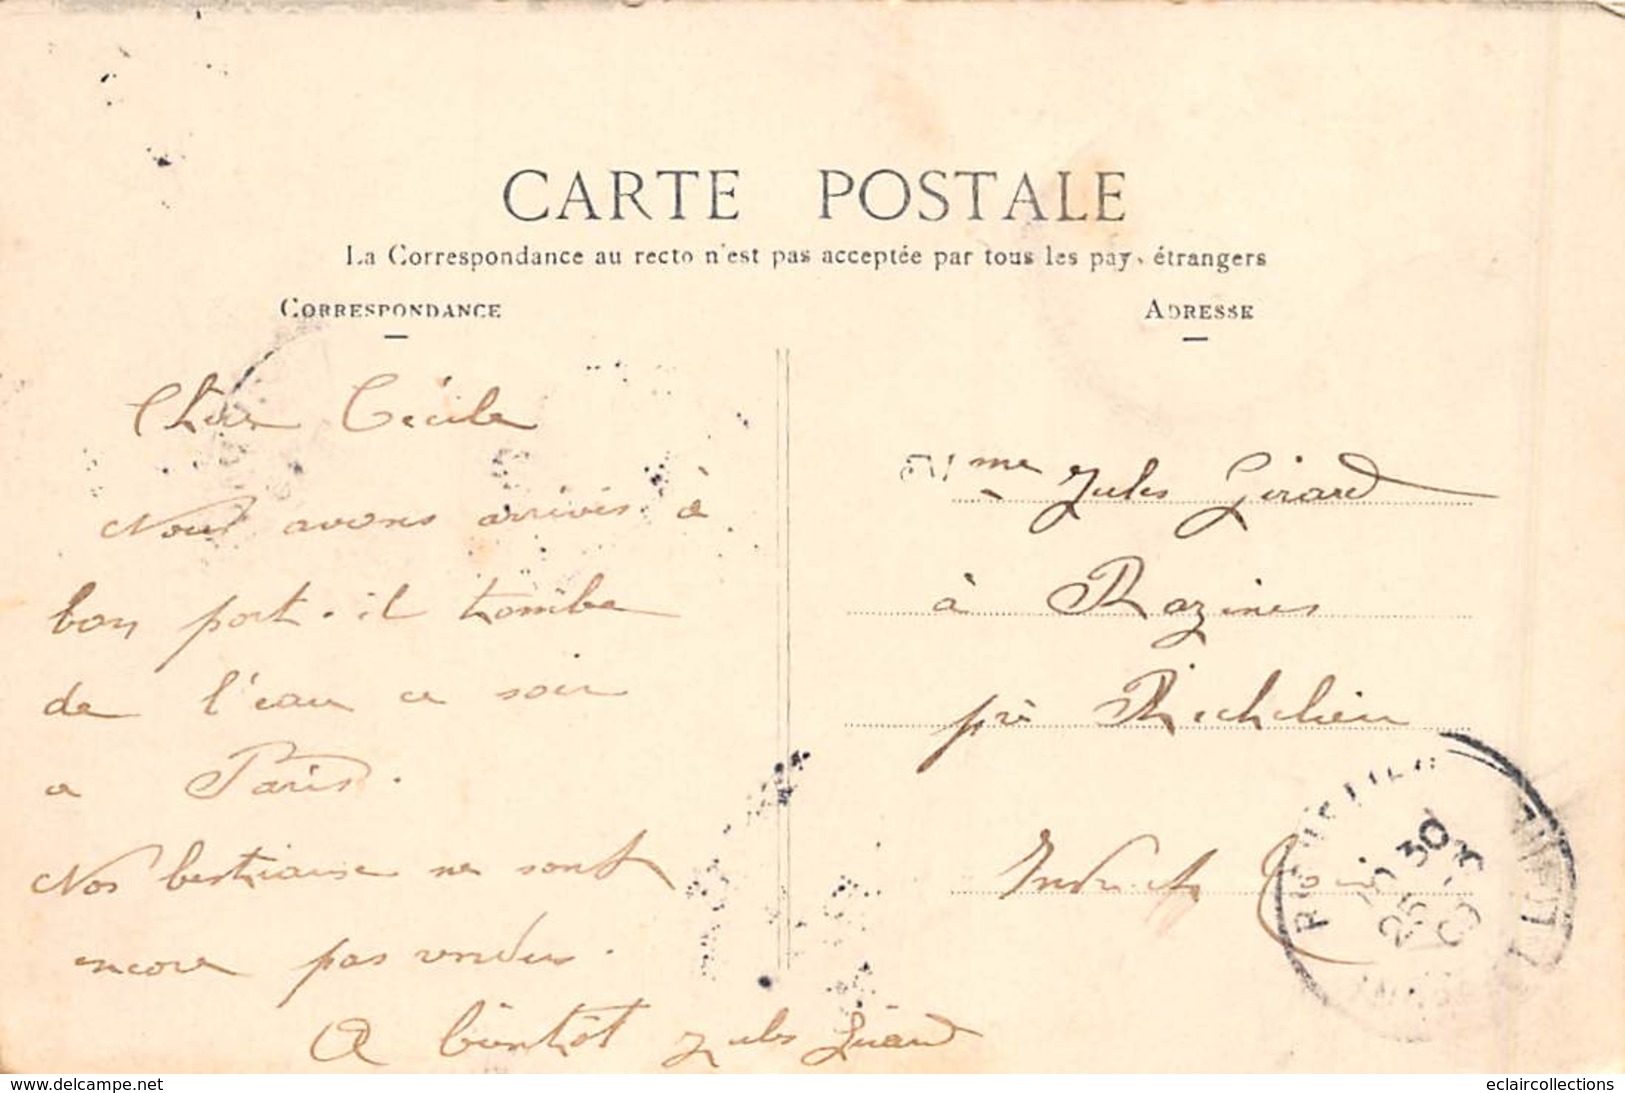 CARTE POSTALE
La Correspondance au recto n'est pas acceptée par tous les pays étrangers
CORRESPONDANCE
ADRESSE
Chère Cécile
Nous avons arrivés à
bon port. il tombe
de l'eau ce soir
a Paris.
Nos bestiaux ne sont
encore pas vendus.
A bientôt Jules Girard
Mme Jules Girard
à Razines
près Richelieu
Indre et Loire
RICHELIEU
30
25 - 3
www.delcampe.net
eclaircollections